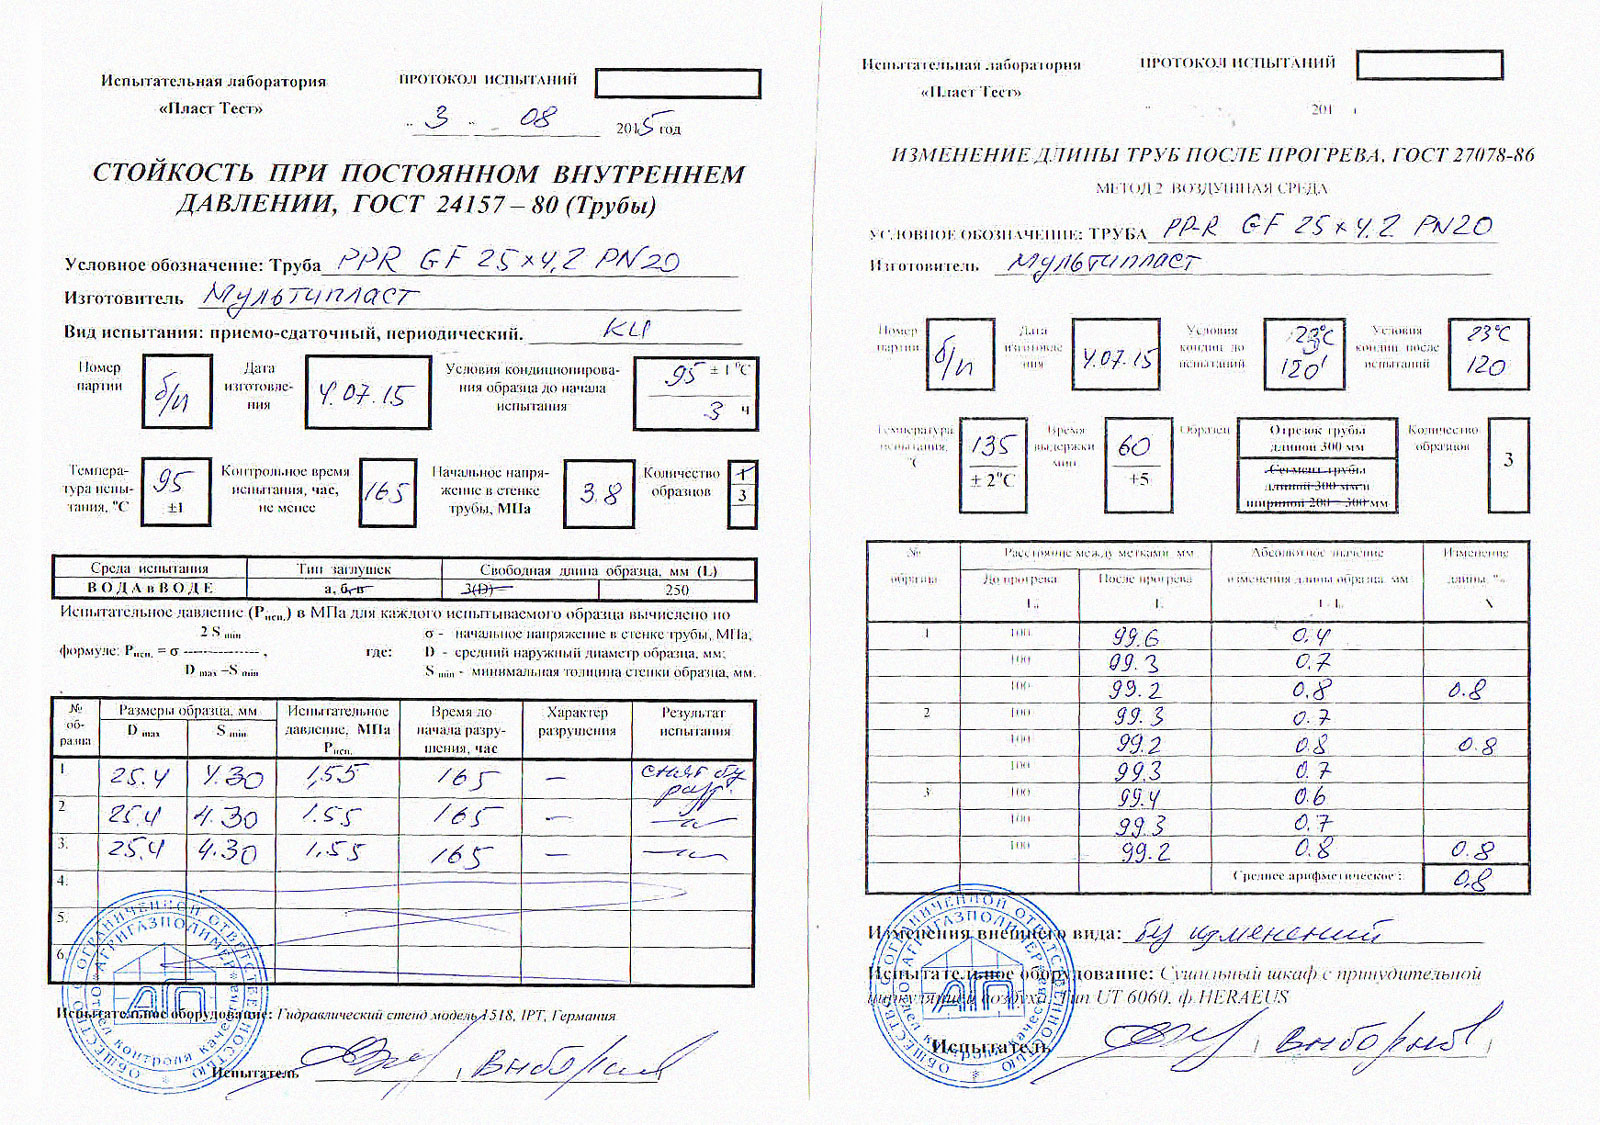 Испытательная лаборатория
«Пласт Тест»
ПРОТОКОЛ ИСПЫТАНИЙ
" 3 " 08 2015 год
СТОЙКОСТЬ ПРИ ПОСТОЯННОМ ВНУТРЕННЕМ
ДАВЛЕНИИ, ГОСТ 24157 – 80 (Трубы)
Условное обозначение: Труба PPR GF 25×4,2 PN20
Изготовитель Мультипласт
Вид испытания: приемо-сдаточный, периодический. КИ
Номер партии б/п
Дата изготовле-ния 4.07.15
Условия кондиционирова-ния образца до начала испытания 95 ± 1 °С 3 ч
Темпера-тура испы-тания, °С 95 ±1
Контрольное время испытания, час, не менее 165
Начальное напря-жение в стенке трубы, МПа 3.8
Количество образцов 1 3
Среда испытания Тип заглушек Свободная длина образца, мм (L)
ВОДА в ВОДЕ а, б, в 3(D) 250
Испытательное давление (Рисп.) в МПа для каждого испытываемого образца вычислено по
2 S min σ - начальное напряжение в стенке трубы, МПа,
формуле: Рисп. = σ --------------- , где: D - средний наружный диаметр образца, мм;
D max –S min S min - минимальная толщина стенки образца, мм.
№ об-разца Размеры образца, мм Испытательное давление, МПа Рисп. Время до начала разру-шения, час Характер разрушения Результат испытания
D max S min
1 25.4 4.30 1,55 165 — снят бу разр.
2 25.4 4.30 1.55 165 — —"—
3. 25.4 4.30 1,55 165 — —"—
4.
5.
6.
ОБЩЕСТВО С ОГРАНИЧЕННОЙ ОТВЕТСТВЕННОСТЬЮ
"АГРИГАЗПОЛИМЕР"
АГП
отдел контроля качества
Испытательное оборудование: Гидравлический стенд модель 1518, IPT, Германия
Испытатель
Испытательная лаборатория
«Пласт Тест»
ПРОТОКОЛ ИСПЫТАНИЙ
201
ИЗМЕНЕНИЕ ДЛИНЫ ТРУБ ПОСЛЕ ПРОГРЕВА, ГОСТ 27078-86
МЕТОД 2 ВОЗДУШНАЯ СРЕДА
УСЛОВНОЕ ОБОЗНАЧЕНИЕ: ТРУБА PP-R GF 25×4,2 PN20
Изготовитель Мультипласт
Номер партии б/п
Дата изготовле ния 4.07.15
Условия кондиц до испытаний 23°С 120'
Условия кондиц после испытаний 23°С 120
Температура испытания, °С 135 ± 2°С
Время выдержки мин 60 +5
Образец Отрезок трубы длиной 300 мм
Сегмент трубы длиной 300 мм и шириной 200 – 300 мм
Количество образцов 3
№ образца Расстояние между метками, мм Абсолютное значение изменения длины образца, мм Изменение длины, %
До прогрева После прогрева
1 100 99.6 0.4
100 99.3 0.7
100 99.2 0.8 0.8
2 100 99.3 0.7
100 99.2 0.8 0.8
100 99.3 0.7
3 100 99.4 0.6
100 99.3 0.7
100 99.2 0.8 0.8
Среднее арифметическое : 0,8
Изменения внешнего вида: бу изменений
Испытательное оборудование: Сушильный шкаф с принудительной
циркуляцией воздуха, Тип UT 6060, ф.HERAEUS
ОБЩЕСТВО С ОГРАНИЧЕННОЙ ОТВЕТСТВЕННОСТЬЮ
"АГРИГАЗПОЛИМЕР"
АГП
отдел контроля качества
Испытатель